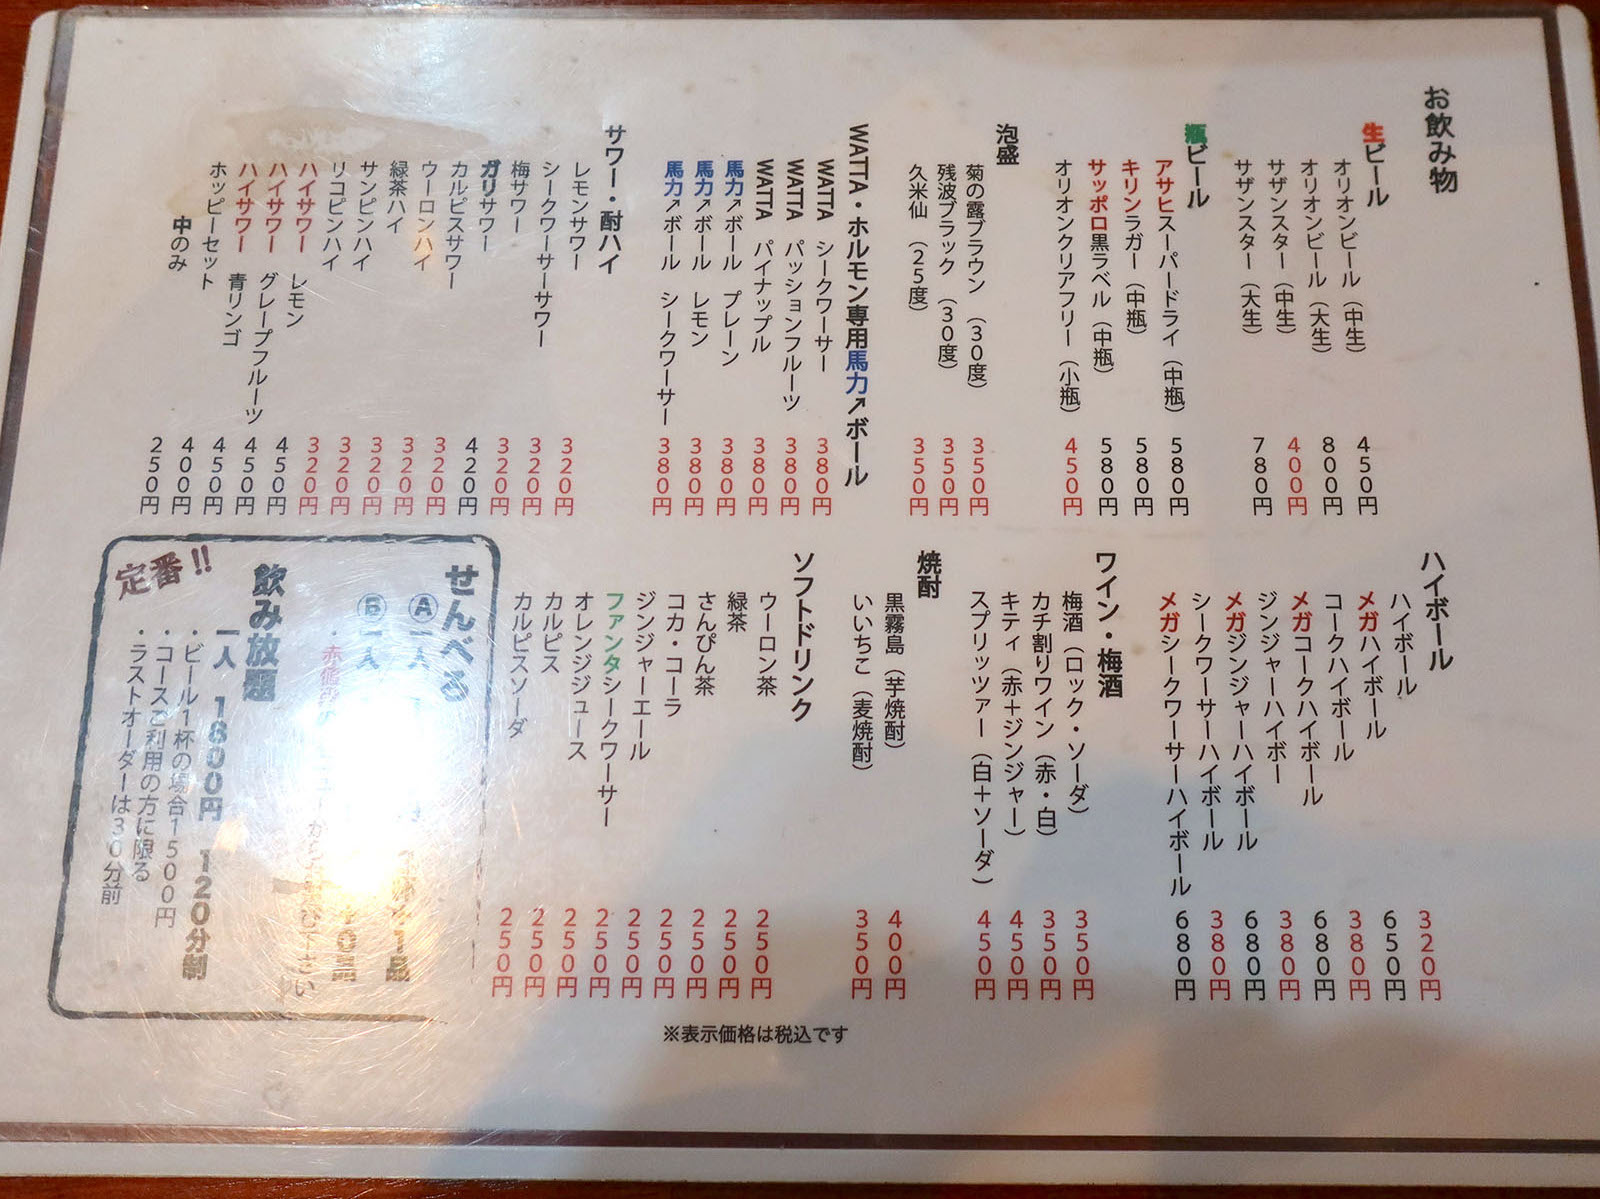 お飲み物
生ビール
オリオンビール（中生） 450円
オリオンビール（大生） 800円
サザンスター（中生） 400円
サザンスター（大生） 780円
瓶ビール
アサヒスーパードライ（中瓶） 580円
キリンラガー（中瓶） 580円
サッポロ黒ラベル（中瓶） 580円
オリオンクリアフリー（小瓶） 450円
泡盛
菊の露ブラウン（30度） 350円
残波ブラック（30度） 350円
久米仙（25度） 350円
WATTA・ホルモン専用馬力↗ボール
WATTA シークワーサー 380円
WATTA パッションフルーツ 380円
WATTA パイナップル 380円
馬力↗ボール プレーン 380円
馬力↗ボール レモン 380円
馬力↗ボール シークワーサー 380円
サワー・酎ハイ
レモンサワー 320円
シークワーサーサワー 320円
梅サワー 320円
ガリサワー 420円
カルピスサワー 320円
ウーロンハイ 320円
緑茶ハイ 320円
サンピンハイ 320円
リコピンハイ 320円
ハイサワー レモン 450円
ハイサワー グレープフルーツ 450円
ハイサワー 青リンゴ 450円
ホッピーセット 400円
中のみ 250円
ハイボール
ハイボール 320円
メガハイボール 650円
コークハイボール 380円
メガコークハイボール 680円
ジンジャーハイボー 380円
メガジンジャーハイボール 680円
シークワーサーハイボール 380円
メガシークワーサーハイボール 680円
ワイン・梅酒
梅酒（ロック・ソーダ） 350円
カチ割りワイン（赤・白） 350円
キティ（赤＋ジンジャー） 450円
スプリッツァー（白＋ソーダ） 450円
焼酎
黒霧島（芋焼酎） 400円
いいちこ（麦焼酎） 350円
ソフトドリンク
ウーロン茶 250円
緑茶 250円
さんぴん茶 250円
コカ・コーラ 250円
ジンジャーエール 250円
ファンタシークワーサー 250円
オレンジジュース 250円
カルピス 250円
カルピスソーダ 250円
せんべろ
Ⓐ一人
Ⓑ一人
飲み放題
一人 1800円 120分制
・ビール1杯の場合1500円
・コースご利用の方に限る
・ラストオーダーは30分前
定番!!
※表示価格は税込です